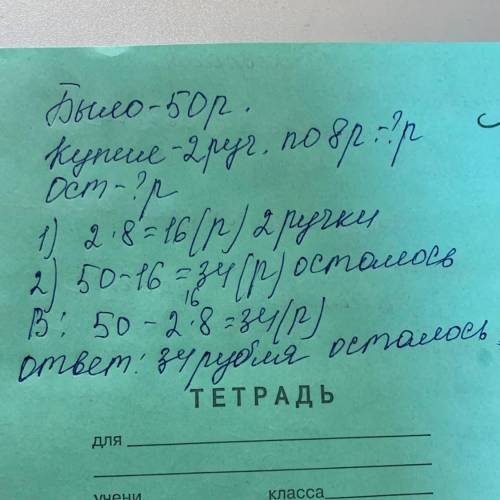 Было - 50 р.
Купил - 2 руч. по 8 р = ? р
Ост - ? р
1) 2 · 8 = 16 (р) 2 ручки
2) 50 - 16 = 34 (р) осталось
16
В: 50 - 2 · 8 = 34 (р)
ответ: 34 рубля осталось.
ТЕТРАДЬ
для
учени класса